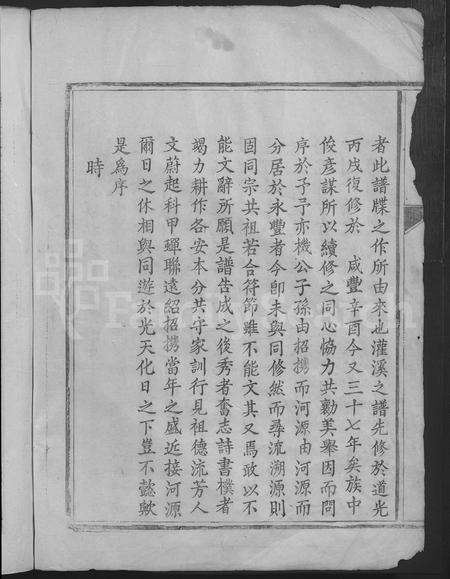 者此譜牒之作所由來也灌溪之譜先修於道光
丙戌復修於 咸豐辛酉今又三十七年矣族中
俊彥謀所以續修之同心協力共勷美舉因而問
序於予予亦機公子孫由招携而河源由河源而
分居於永豐者今卽未與同修然而尋流溯源則
固同宗共祖若合符節雖不能文其又焉敢以不
能文辭所願是譜告成之後秀者奮志詩書樸者
竭力耕作各安本分共守家訓行見祖德流芳人
文蔚起科甲蟬聯遠紹招携當年之盛近接河源
爾日之休相與同遊於光天化日之下豈不懿歟
是爲序
時